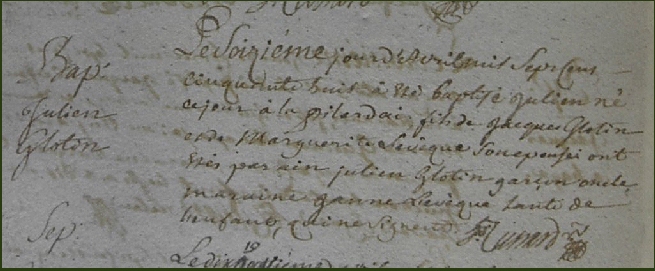 Bap:
Julien
Glotin
Le Soizième jour d'Avril mil Sept Cens
cinquante huit à été baptisé Julien né
ce jour à la pilardai fils de Jacques Glotin
et de Marguerite Levêque Son epouse ont
étés parain julien Glotin garçon oncle
maraine Janne Levêque tante de
l'enfant, qui ne signent
Sep:
Le dix